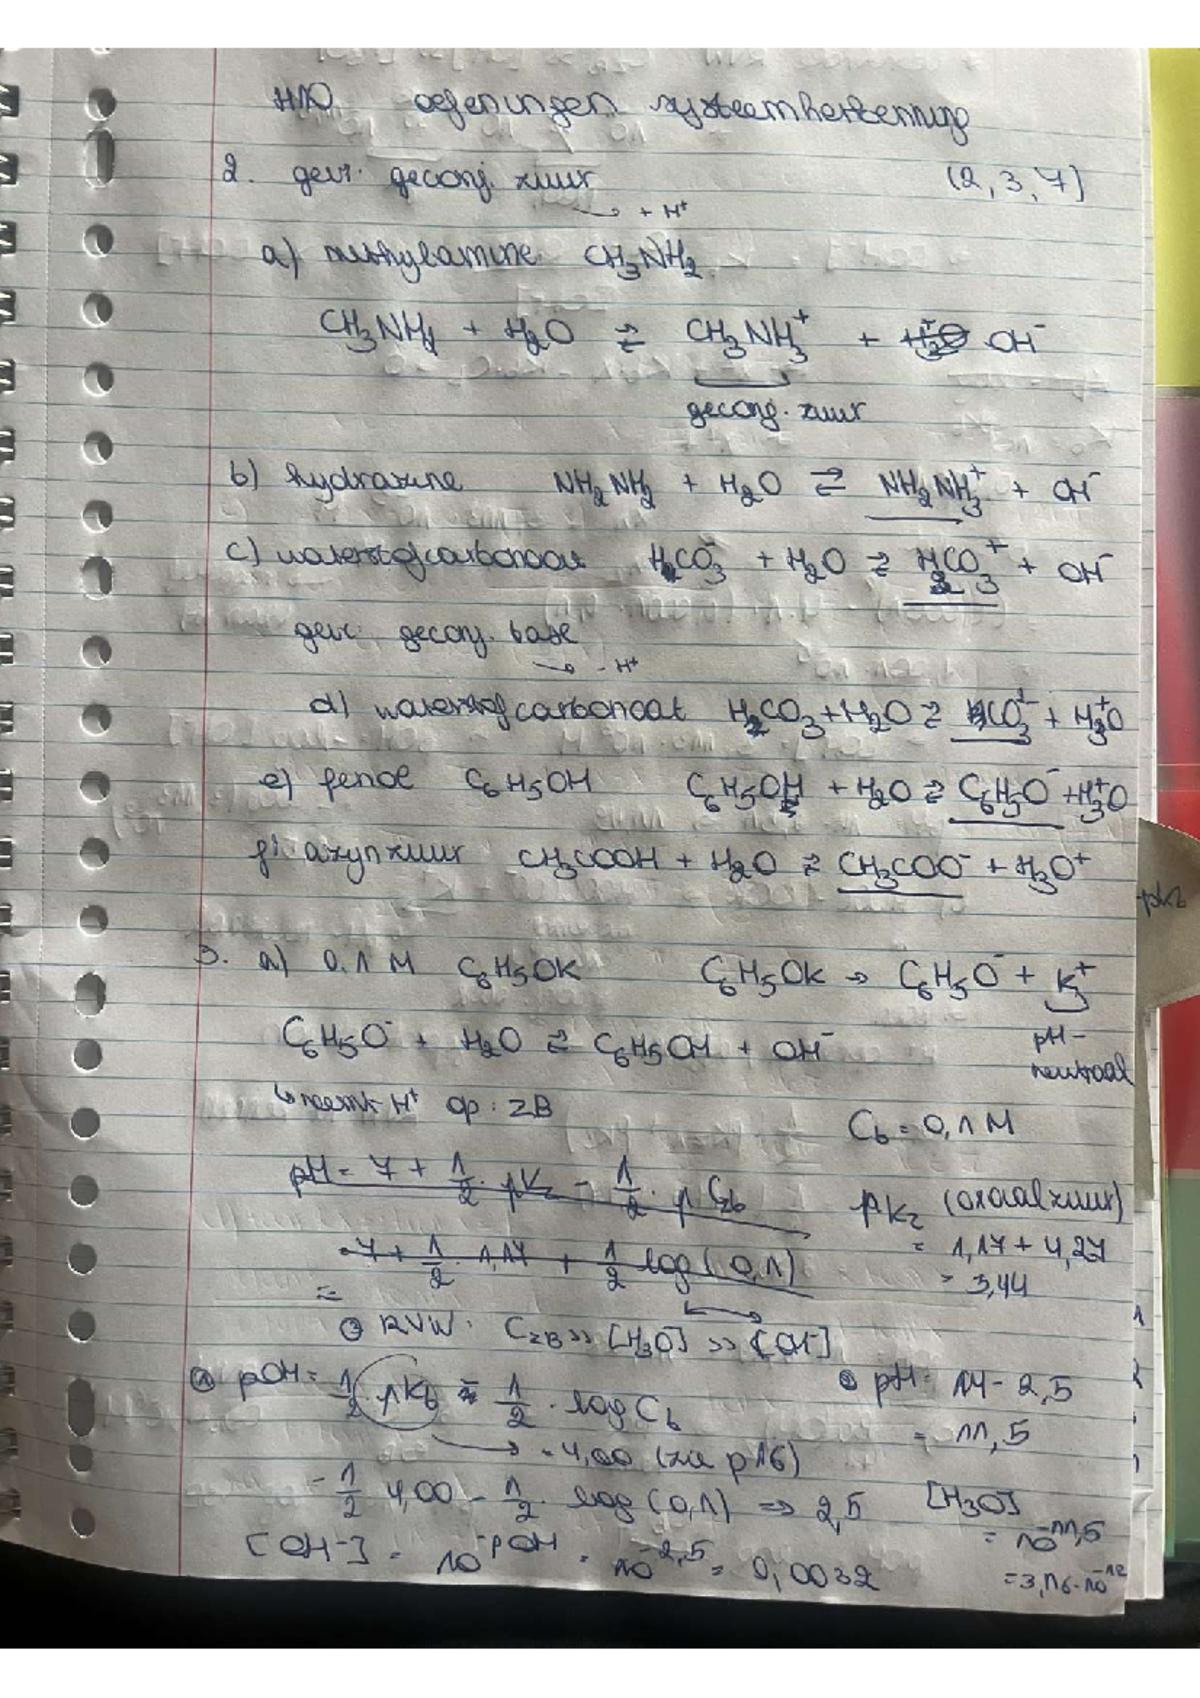 H10 oefeningen systeemherkenning
2. gevr. geconj. zuur (2, 3, 7)
→ + H⁺
a) methylamine CH₃NH₂
CH₃NH₂ + H₂O ⇌ CH₃NH₃⁺ + OH⁻
geconj. zuur
b) hydrazine NH₂NH₂ + H₂O ⇌ NH₂NH₃⁺ + OH⁻
c) waterstofcarbonaat HCO₃⁻ + H₂O ⇌ H₂CO₃⁺ + OH⁻
gevr. geconj. base
→ - H⁺
d) waterstofcarbonaat H₂CO₃ + H₂O ⇌ HCO₃⁻ + H₃O⁺
e) fenol C₆H₅OH C₆H₅OH + H₂O ⇌ C₆H₅O⁻ + H₃O⁺
f) azijnzuur CH₃COOH + H₂O ⇌ CH₃COO⁻ + H₃O⁺
pkz
3. a) 0,1 M C₆H₅OK C₆H₅OK → C₆H₅O⁻ + K⁺
pH-neutraal
C₆H₅O⁻ + H₂O ⇌ C₆H₅OH + OH⁻
↳ neemt H⁺ op : ZB
Cb = 0,1 M
pH = 7 + 1/2 · pKz - 1/2 · p Czb
pKz (oxaalzuur)
= 7 + 1/2 · 1,17 + 1/2 log (0,1)
= 1,17 + 4,27
= 3,44
=
③ RVW: CzB >> [H₃O] >> [OH⁻]
① pOH = 1/2 · pKb - 1/2 · log Cb
② pH = 14 - 2,5
= 11,5
→ = 4,00 (zie p16)
= 1/2 4,00 - 1/2 · log (0,1) ⇒ 2,5
[H₃O]
= 10⁻¹¹,⁵
= 3,16·10⁻¹²
[OH⁻] = 10⁻ᵖᴼᴴ = 10⁻²,⁵ = 0,0032